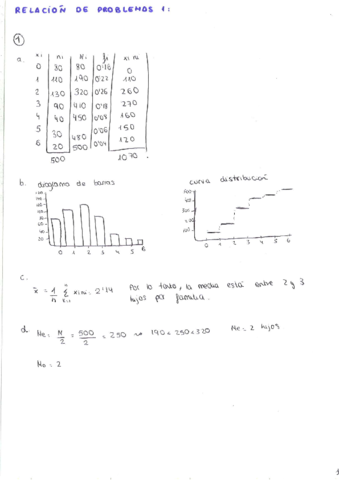 RELACIÓN DE PROBLEMAS 1:
1
a.
xi ni Ni fi xi ni
0 80 80 0'16 0
1 110 190 0'22 110
2 130 320 0'26 260
3 90 410 0'18 270
4 40 450 0'08 160
5 30 480 0'06 150
6 20 500 0'04 120
500 1070
b. diagrama de barras
curva distribución
0 1 2 3 4 5 6
0 1 2 3 4 5 6
c.
x̄ = 1/n Σ xi ni = 2'14 Por lo tanto, la media está entre 2 y 3
hijos por familia.
d. Me = N/2 = 500/2 = 250 → 190 < 250 < 320 Me = 2 hijos
Mo = 2